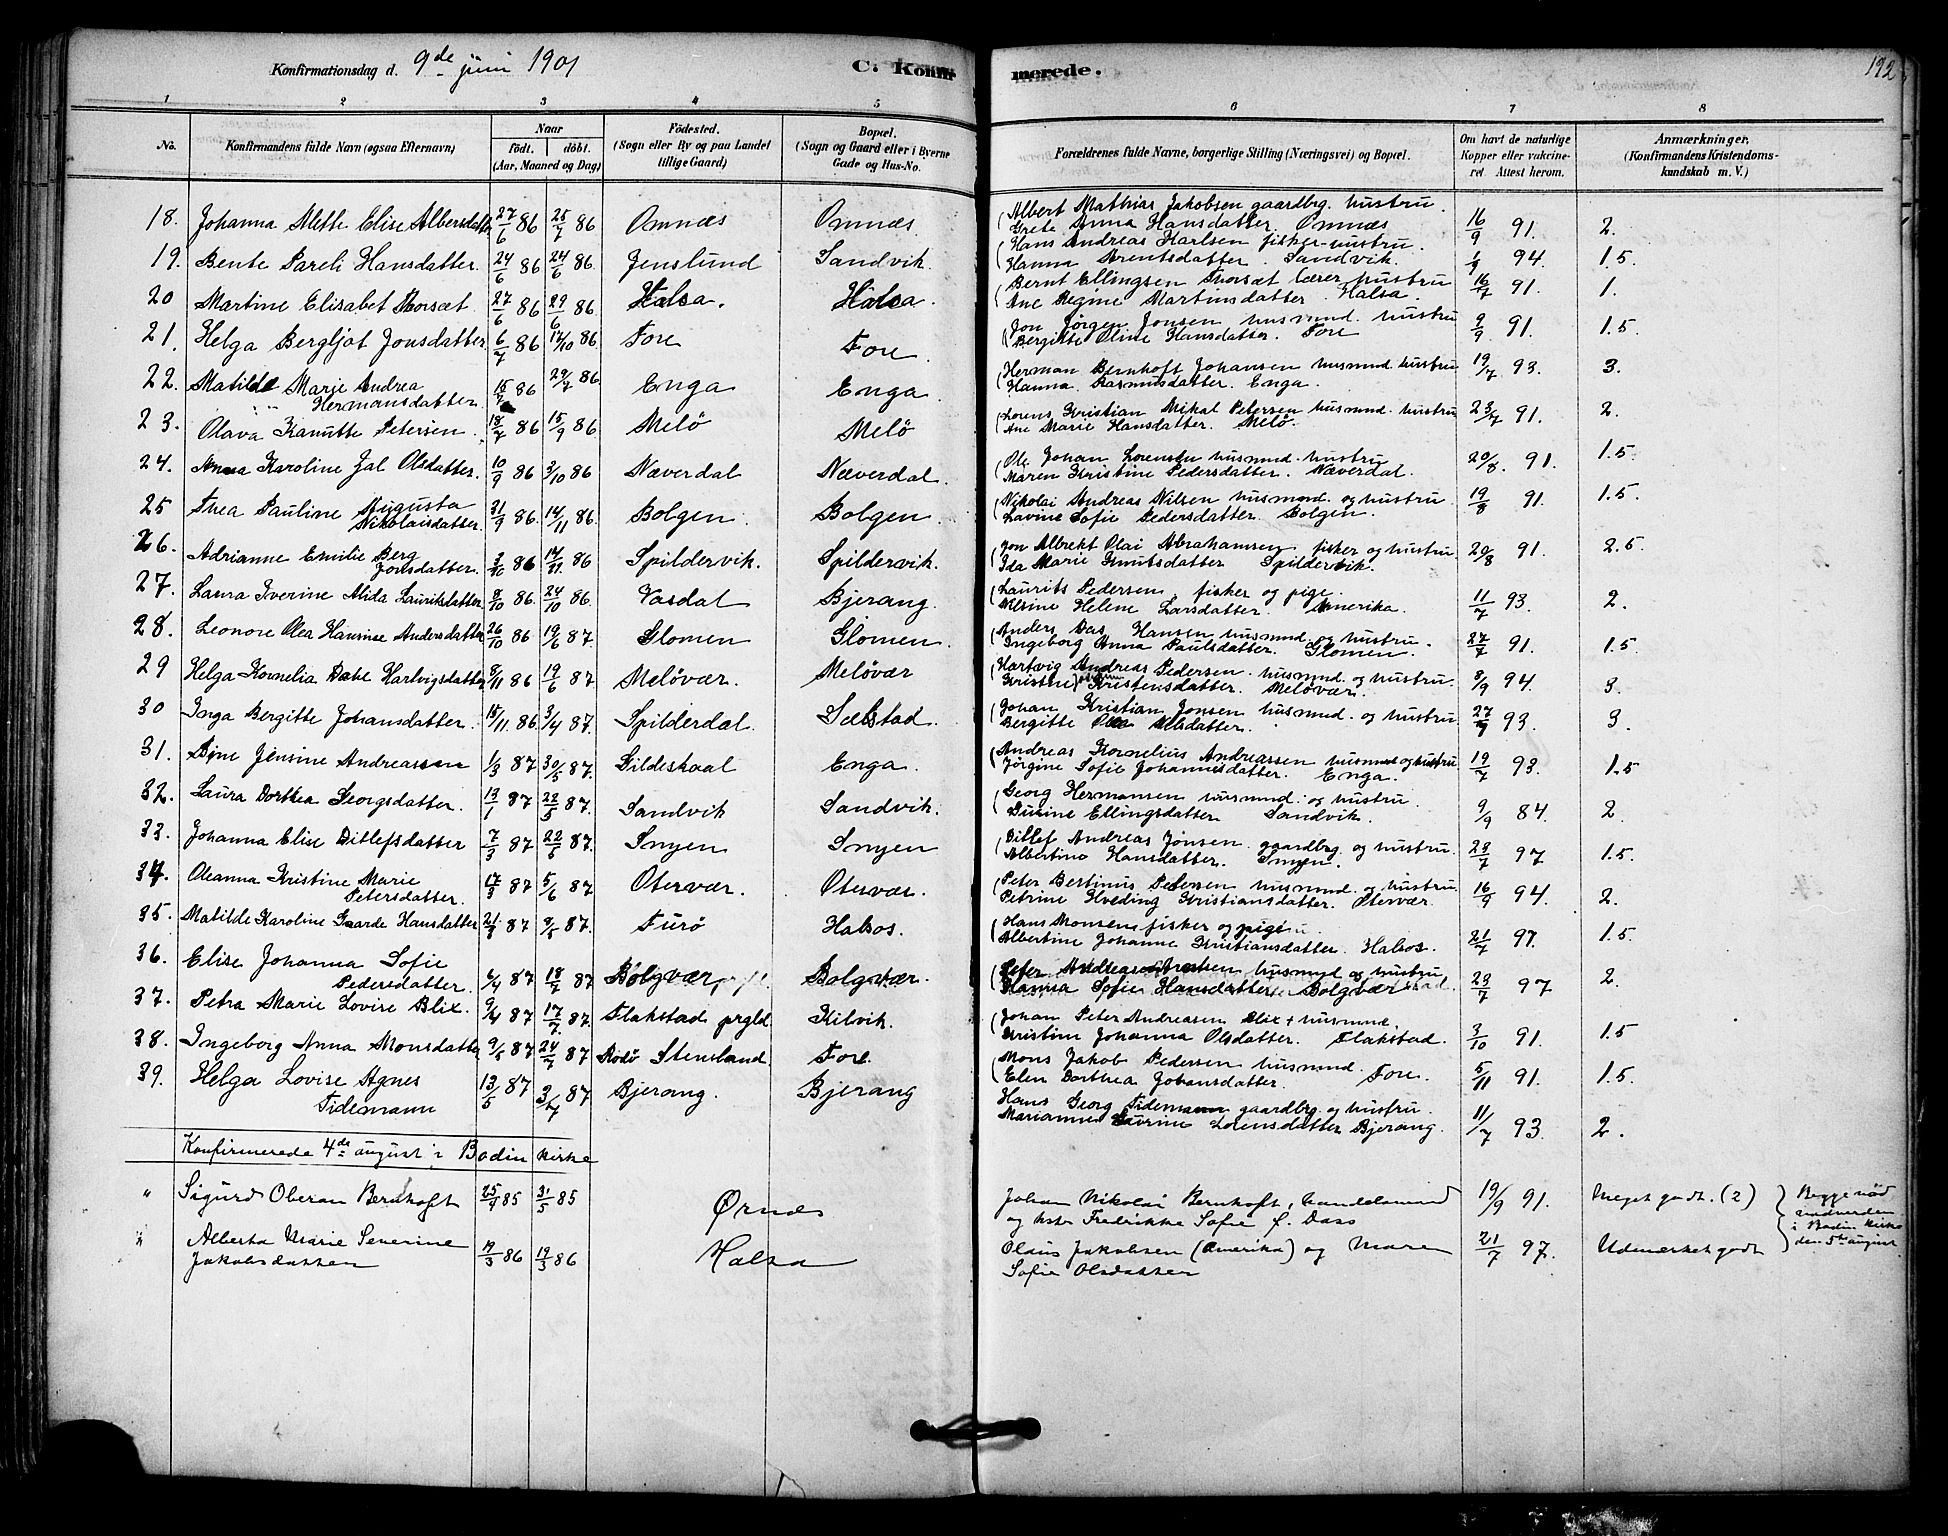 192
Konfirmationsdag d. 9de juni 1901
C. Konfirmerede.
1 2 3 4 5 6 7 8
No. Konfirmandens fulde Navn (ogsaa Efternavn) Naar Födt. döbt. (Aar, Maaned og Dag) Födested. (Sogn eller By og paa Landet tillige Gaard) Bopæl. (Sogn og Gaard eller i Byerne Gade og Hus-No. Forældrenes fulde Navne, borgerlige Stilling (Næringsvei) og Bopæl. Om havt de naturlige Kopper eller vakcineret. Attest herom. Anmærkninger, (Konfirmandens Kristendomskundskab m. V.)
18. Johanna Mette Elise Albersdatter 27/6 86 25/7 86 Omnæs Omnæs. Albert Mathias Jakobsen gaardbrg. hustru. Grete Anna Hansdatter. Omnæs 16/9 91. 2.
19. Bente Pareli Hansdatter. 24/6 86 24/6 86. Jenslund Sandvik. Hans Andreas Karlsen fisker-hustru. Hanna Arentsdatter. Sandvik. 94. 1.5.
20 Martine Elisabet Thorsæt 27/6 86 29/6 86. Halsa. Halsa. Bernt Ellingsen Thorsæt lærer hustru Ane Regine Martinsdatter. Halsa. 16/7 91. 1.
21. Helga Bergljot Jonsdatter 6/7 86 17/10 86. Fore Fore. Jon Jörgen Jonsen husmnd. hustru Bergitte Oline Hansdatter. Fore 9/9 91. 1.5
22. Matilde Marie Andrea Hermansdatter. 15/7 86 29/7 86. Enga Enga. Herman Bernhoft Johansen husmnd. hustru Hanna Rasmusdatter. Enga. 19/7 93. 3.
23. Olava Kanutte Petersen. 18/7 86 15/9 86 Melö Melö Lorens Kristian Mikal Petersen husmnd. hustru Ane Marie Hansdatter. Melö. 23/7 91. 2.
24. Anna Karoline Jal Olsdatter. 10/9 86 3/10 86 Næverdal Næverdal. Ole Johan Lorentsen husmnd. hustru Maren Kristine Pedersdatter. Næverdal. 20/8. 91. 1.5.
25 Thea Pauline Augusta Nikolaisdatter. 21/9 86. 14/11 86. Bolgen. Bolgen. Nikolai Andreas Nilsen husmnd. og hustru. Lavine Sofie Pedersdatter. Bolgen. 19/8 91. 1.5
26. Adrianne Emilie Berg Jonsdatter. 3/10 86 14/11 86 Spildervik. Spildervik. Jon Albrekt Olai Abrahamsen. fisker og hustru Ida Marie Knutsdatter Spildervik. 20/8 91. 2.5.
27. Laura Iverine Alida Lauritsdatter 8/10 86. 24/10 86. Vasdal Bjerang. Laurits Pedersen, fisker og pige. Alsine Helene Larsdatter. Amerika. 11/7 93. 2.
28. Leonore Olea Hansine Andersdatter 26/10 86 19/6 87. Glomen Glomen. Anders Das Hansen husmnd. og hustru. Ingeborg Anna Paulsdatter. Glomen. 27/7 91. 1.5.
29 Helga Kornelia Dahl Hartvigsdatter 8/11 86 19/6 87 Melövær. Melövær Hartvig Andreas Pedersen. husmnd. og hustru. Kristine Kristensdatter. Melövær. 8/9 94. 3.
30 Inga Bergitte Johansdatter. 15/11. 86 3/4 87. Spilderdal. Sælstad. Johan Kristian Jonsen husmnd. og hustru Bergitte Olea Nilsdatter. 93. 3.
31. Bine Jensine Andreassen 1/3 87 30/5 87. Gildeskaal Enga. Andreas Kornelius Andreassen husmnd og hustru Jörgine Sofie Johannesdatter. Enga. 19/7 93. 1.5
32. Laura Dorthea Georgsdatter. 13/1 87 22/5 87. Sandvik Sandvik. Georg Hermansen husmnd. og hustru. Ellingsdatter Sandvik. 9/9 84. 2.
33. Johanna Elise Ditlefsdatter 7/3 87 22/5 87. Smyen Smyen Ditlef Andreas Jönsen gaardbrg. og hustru. Albertine Hansdatter. Smyen. 23/7 97 1.5.
34. Oleanna Kristine Marie Petersdatter. 17/3 87 5/6 87 Otervær. Otervær. Peter Bertinus Petersen husmnd. og hustru Petrine Hveding Kristiansdatter. Otervær. 16/9 94. 2.
35. Matilde Karoline Gaarde Hansdatter 87 8/5 87. Furö Halsos. Hans Monsen fisker og pige Albertine Johanne Kristiansdatter. Halsos. 21/7 97. 1.5.
36. Elise Johanna Sofie Pedersdatter. 6/4 87 18/7 87 Bolgvær Bolgvær. Peter Andreas husmnd og hustru Hanna Sofie Hansdatter Bolgvær 23/7 97 2.
37. Petra Marie Lovise Blix. 9/4 87 17/7 87. Flakstad prgld. Kilvik. Johan Peter Andreasen Blix + husmnd. Kristine Johanna Olsdatter. Flakstad. 3/10 91. 1.5
38. Ingeborg Anna Monsdatter 9/5 87 24/7 87 Rödö Stensland. Fore. Mons Jakob Pedersen husmnd. Elen Dorthea Johansdatter. Fore. 5/11 91. 1.5.
39. Helga Lovise Agnes Tidemann 13/5 87 3/7 87 Bjerang. Bjerang Hans Georg Tidemann gaardbrg. og hustru. Marianne Laurine Lorensdatter Bjerang. 11/7 93. 2.
Konfirmerede 4de august i Bodin kirke
" Sigurd Oberon Bernhoft 25/4 85 31/5 85 Ørnæs Johan Nikolai Bernhoft, handelsmand og hstr Fredrikke Sofie f. Dass 19/9 91. Meget godt. (2)
" Alberta Marie Severine Jakobsdatter 86 19/3 86 Halsa Olaus Jakobsen (Amerika) og Maren Sofie Olsdatter 21/7 97. Udmerket godt
Begge nöd nadverden i Bodin kirke den 5te august